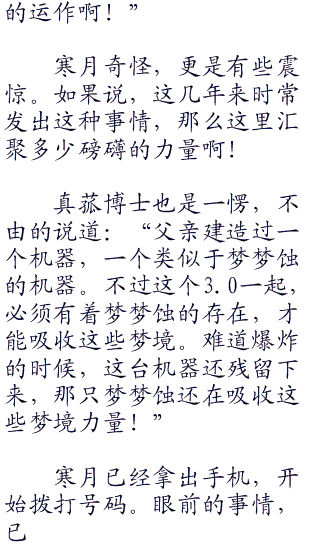 的运作啊！”
寒月奇怪，更是有些震
惊。如果说，这几年来时常
发出这种事情，那么这里汇
聚多少磅礴的力量啊！
真菰博士也是一愣，不
由的说道：“父亲建造过一
个机器，一个类似于梦梦蚀
的机器。不过这个3.0一起，
必须有着梦梦蚀的存在，才
能吸收这些梦境。难道爆炸
的时候，这台机器还残留下
来，那只梦梦蚀还在吸收这
些梦境力量！”
寒月已经拿出手机，开
始拨打号码。眼前的事情，
已